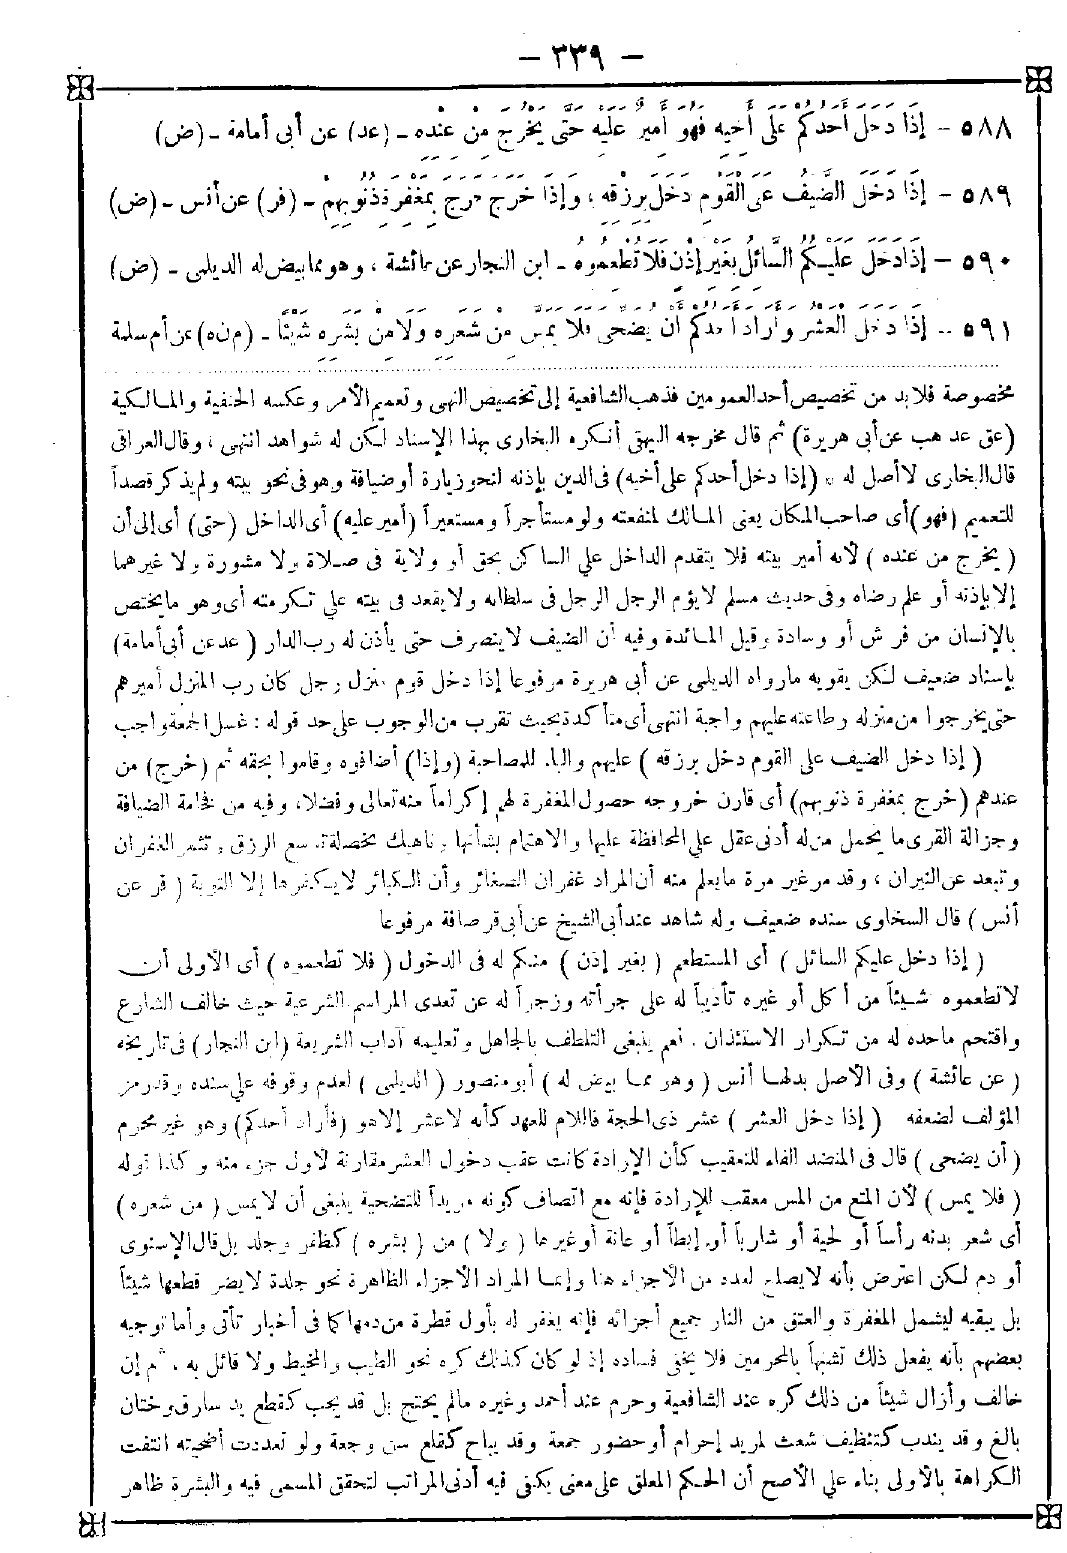 – ٣٣٩ –
٥٨٨ – إِذَا دَخَلَ أَحَدُكُمْ عَلَى أَخِيهِ فَهُوَ أَمِيرٌ عَلَيْهِ حَتَّى يَخْرُجَ مِنْ عِنْدِهِ – (عد) عن أبى أمامة – (ض)
٥٨٩ – إِذَا دَخَلَ الضَّيْفُ عَلَى الْقَوْمِ دَخَلَ بِرِزْقِهِ ، وَإِذَا خَرَجَ خَرَجَ بِمَغْفِرَةِ ذُنُوبِهِمْ – (فر) عن أنس – (ض)
٥٩٠ – إِذَا دَخَلَ عَلَيْكُمُ السَّائِلُ بِغَيْرِ إِذْنٍ فَلَا تُطْعِمُوهُ – ابن النجار عن عائشة ، وهو مما بيض له الديلمى – (ض)
٥٩١ – إِذَا دَخَلَ الْعَشْرُ وَأَرَادَ أَحَدُكُمْ أَنْ يُضَحِّىَ فَلَا يَمَسَّ مِنْ شَعَرِهِ وَلَا مِنْ بَشَرِهِ شَيْئًا – (م ن ه) عن أم سلمة
مخصوصة فلا بد من تخصيص أحد العمومين فذهب الشافعية إلى تخصيص النهى وتعميم الأمر وعكسه الحنفية والمالكية
(عق عد هب عن أبى هريرة) ثم قال مخرجه البيهقى أنكره البخارى بهذا الإسناد لكن له شواهد انتهى ، وقال العراقى
قال البخارى لا أصل له * (إذا دخل أحدكم على أخيه) فى الدين بإذنه لنحو زيارة أو ضيافة وهو فى نحو بيته ولم يذكر قصداً
للتعميم (فهو) أى صاحب المكان يعنى المالك لمنفعته ولو مستأجراً ومستعيراً (أمير عليه) أى الداخل (حتى) أى إلى أن
( يخرج من عنده ) لأنه أمير بيته فلا يتقدم الداخل على الساكن بحق أو ولاية فى صلاة ولا مشورة ولا غيرهما
إلا بإذنه أو علم رضاه وفى حديث مسلم لا يؤم الرجل الرجل فى سلطانه ولا يقعد فى بيته على تكرمته أى وهو ما يختص
بالإنسان من فرش أو وسادة وقيل المائدة وفيه أن الضيف لا يتصرف حتى يأذن له رب الدار ( عد عن أبى أمامة)
بإسناد ضعيف لكن يقويه مارواه الديلمى عن أبى هريرة مرفوعا إذا دخل قوم منزل رجل كان رب المنزل أميرهم
حتى يخرجوا من منزله وطاعته عليهم واجبة انتهى أى متأكدة بحيث تقرب من الوجوب على حد قوله : غسل الجمعة واجب
( إذا دخل الضيف على القوم دخل برزقه ) عليهم والباء للمصاحبة (وإذا) أضافوه وقاموا بحقه ثم (خرج) من
عندهم (خرج بمغفرة ذنوبهم) أى قارن خروجه حصول المغفرة لهم إكراماً منه تعالى وفضلا ، وفيه من فخامة الضيافة
وجزالة القرى ما يحمل من له أدنى عقل على المحافظة عليها والاهتمام بشأنها وناهيك بخصلة توسع الرزق وتثمر الغفران
وتبعد عن النيران ، وقد مر غير مرة ما يعلم منه أن المراد غفران الصغائر وأن الكبائر لا يكفرها إلا التوبة ( فر عن
أنس ) قال السخاوى سنده ضعيف وله شاهد عند أبى الشيخ عن أبى قرصافة مرفوعا
( إذا دخل عليكم السائل ) أى المستطعم ( بغير إذن ) منكم له فى الدخول ( فلا تطعموه ) أى الأولى أن
لا تطعموه شيئاً من أكل أو غيره تأديباً له على جرأته وزجراً له عن تعدى المراسم الشرعية حيث خالف الشارع
واقتحم ما حده له من تكرار الاستئذان . نعم ينبغى التلطف بالجاهل وتعليمه آداب الشريعة (ابن النجار) فى تاريخه
( عن عائشة ) وفى الأصل بدلها أنس ( وهو مما بيض له ) أبو منصور ( الديلمى ) لعدم وقوفه على سنده وقد رمز
المؤلف لضعفه ( إذا دخل العشر ) عشر ذى الحجة فاللام للعهد كأنه لا عشر إلا هو (فأراد أحدكم) وهو غير محرم
( أن يضحى ) قال فى المنضد الفاء للتعقيب كأن الإرادة كانت عقب دخول العشر مقارنة لأول جزء منه وكذا قوله
( فلا يمس ) لأن المنع من المس معقب للإرادة فإنه مع اتصاف كونه مريداً للتضحية ينبغى أن لا يمس ( من شعره )
أى شعر بدنه رأساً أو لحية أو شارباً أو إبطاً أو عانة أو غيرها ( ولا ) من ( بشره ) كظفر وجلد بل قال الإسنوى
أو دم لكن اعترض بأنه لا يصلح لعدد من الأجزاء هنا وإنما المراد الأجزاء الظاهرة نحو جلدة لا يضر قطعها شيئاً
بل يبقيه ليشمل المغفرة والعتق من النار جميع أجزائه فإنه يغفر له بأول قطرة من دمها كما فى أخبار تأتى وأما توجيه
بعضهم بأنه يفعل ذلك تشبهاً بالمحرمين فلا يخفى فساده إذ لو كان كذلك كره نحو الطيب والمخيط ولا قائل به ، ثم إن
خالف وأزال شيئاً من ذلك كره عند الشافعية وحرم عند أحمد وغيره مالم يحتج بل قد يجب كقطع يد سارق وختان
بالغ وقد يندب كتنظيف شعث لمريد إحرام أو حضور جمعة وقد يباح كقلع سن وجعة ولو تعددت أضحيته انتفت
الكراهة بالأولى بناء على الأصح أن الحكم المعلق على معنى يكفى فيه أدنى المراتب لتحقق المسمى فيه والبشرة ظاهر